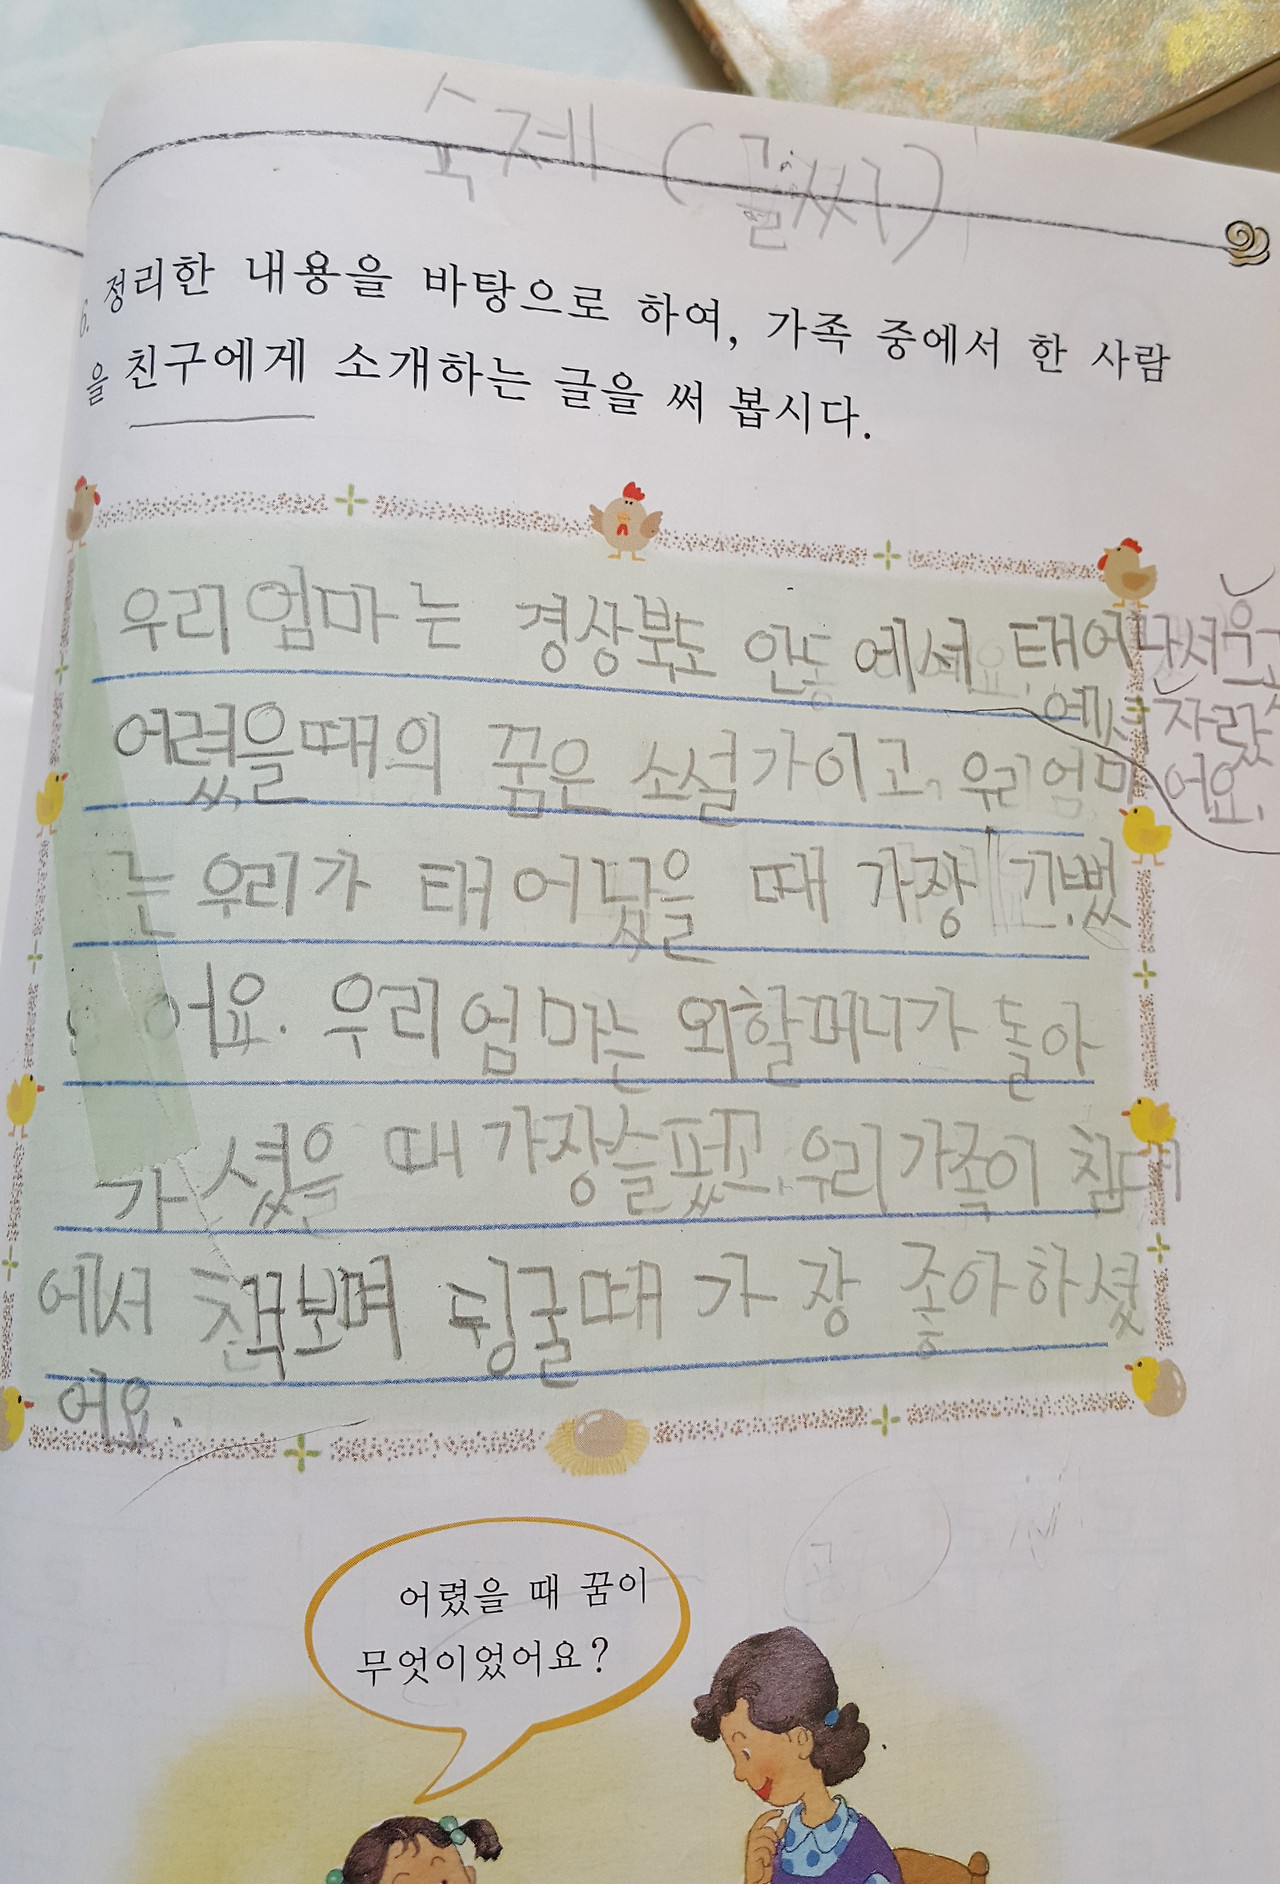 숙제 (글씨)
6. 정리한 내용을 바탕으로 하여, 가족 중에서 한 사람
을 친구에게 소개하는 글을 써 봅시다.
우리 엄마는 경상북도 안동에서 태어나셔
에서 자랐
어요.
어렸을때의 꿈은 소설가이고, 우리엄마
는 우리가 태어났을 때 가장 기뻤
어요. 우리 엄마는 외할머니가 돌아
가셨을 때 가장슬펐고, 우리가족이 침대
에서 책보며 뒹굴때 가장 좋아하셨
어요.
어렸을 때 꿈이
무엇이었어요?